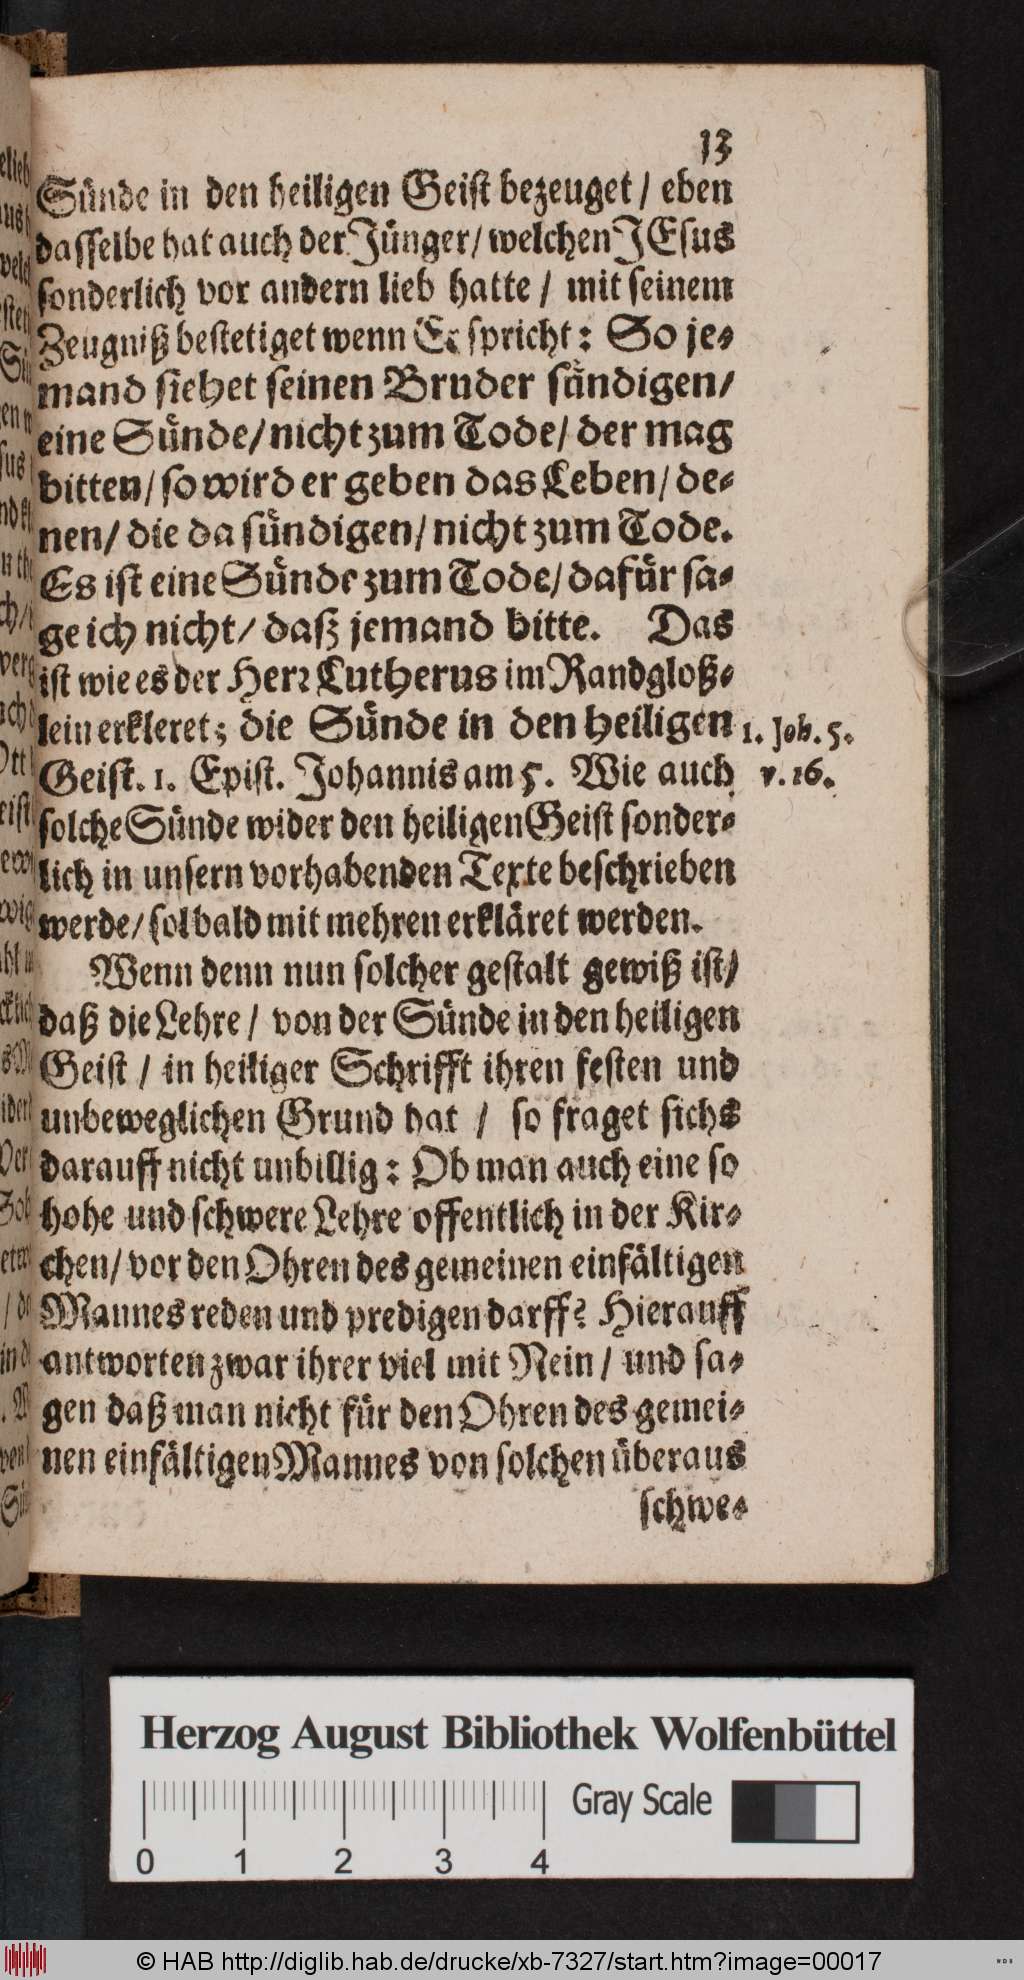 13
Sünde in den heiligen Geist bezeuget / eben
dasselbe hat auch der Jünger / welchen JEsus
sonderlich vor andern lieb hatte / mit seinem
Zeugniß bestetiget wenn Er spricht: So je-
mand siehet seinen Bruder sündigen /
eine Sünde / nicht zum Tode / der mag
bitten / so wird er geben das Leben / de-
nen / die da sündigen / nicht zum Tode.
Es ist eine Sünde zum Tode / dafür sa-
ge ich nicht / daß jemand bitte. Das
ist wie es der Herr Lutherus im Randgloß-
lein erkleret; die Sünde in den heiligen
1. Joh. 5.
Geist. 1. Epist. Johannis am 5. Wie auch
v. 16.
solche Sünde wider den heiligen Geist sonder-
lich in unsern vorhabenden Texte beschrieben
werde / sol bald mit mehren erkläret werden.
Wenn denn nun solcher gestalt gewiß ist /
daß die Lehre / von der Sünde in den heiligen
Geist / in heiliger Schrifft ihren festen und
unbeweglichen Grund hat / so fraget sichs
darauff nicht unbillig: Ob man auch eine so
hohe und schwere Lehre offentlich in der Kir-
chen / vor den Ohren des gemeinen einfältigen
Mannes reden und predigen darff? Hierauff
antworten zwar ihrer viel mit Nein / und sa-
gen daß man nicht für den Ohren des gemei-
nen einfältigen Mannes von solchen überaus
schwe-
Herzog August Bibliothek Wolfenbüttel
Gray Scale
0 1 2 3 4
© HAB http://diglib.hab.de/drucke/xb-7327/start.htm?image=00017